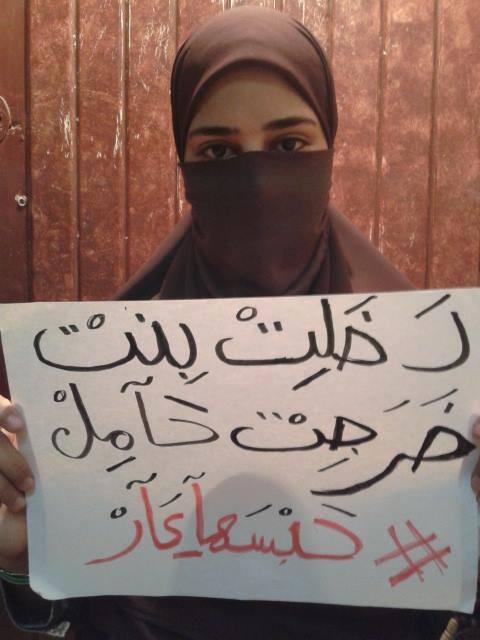 دَخَلِتْ بِنتْ
خَرَجِتْ حَآمِلْ
#حَبْسَهآيعَآرْ